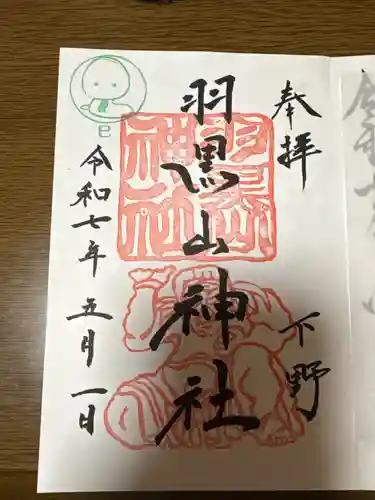 奉拝
下野
羽黒山神社
羽黒山
神社
令和七年五月一日
巳